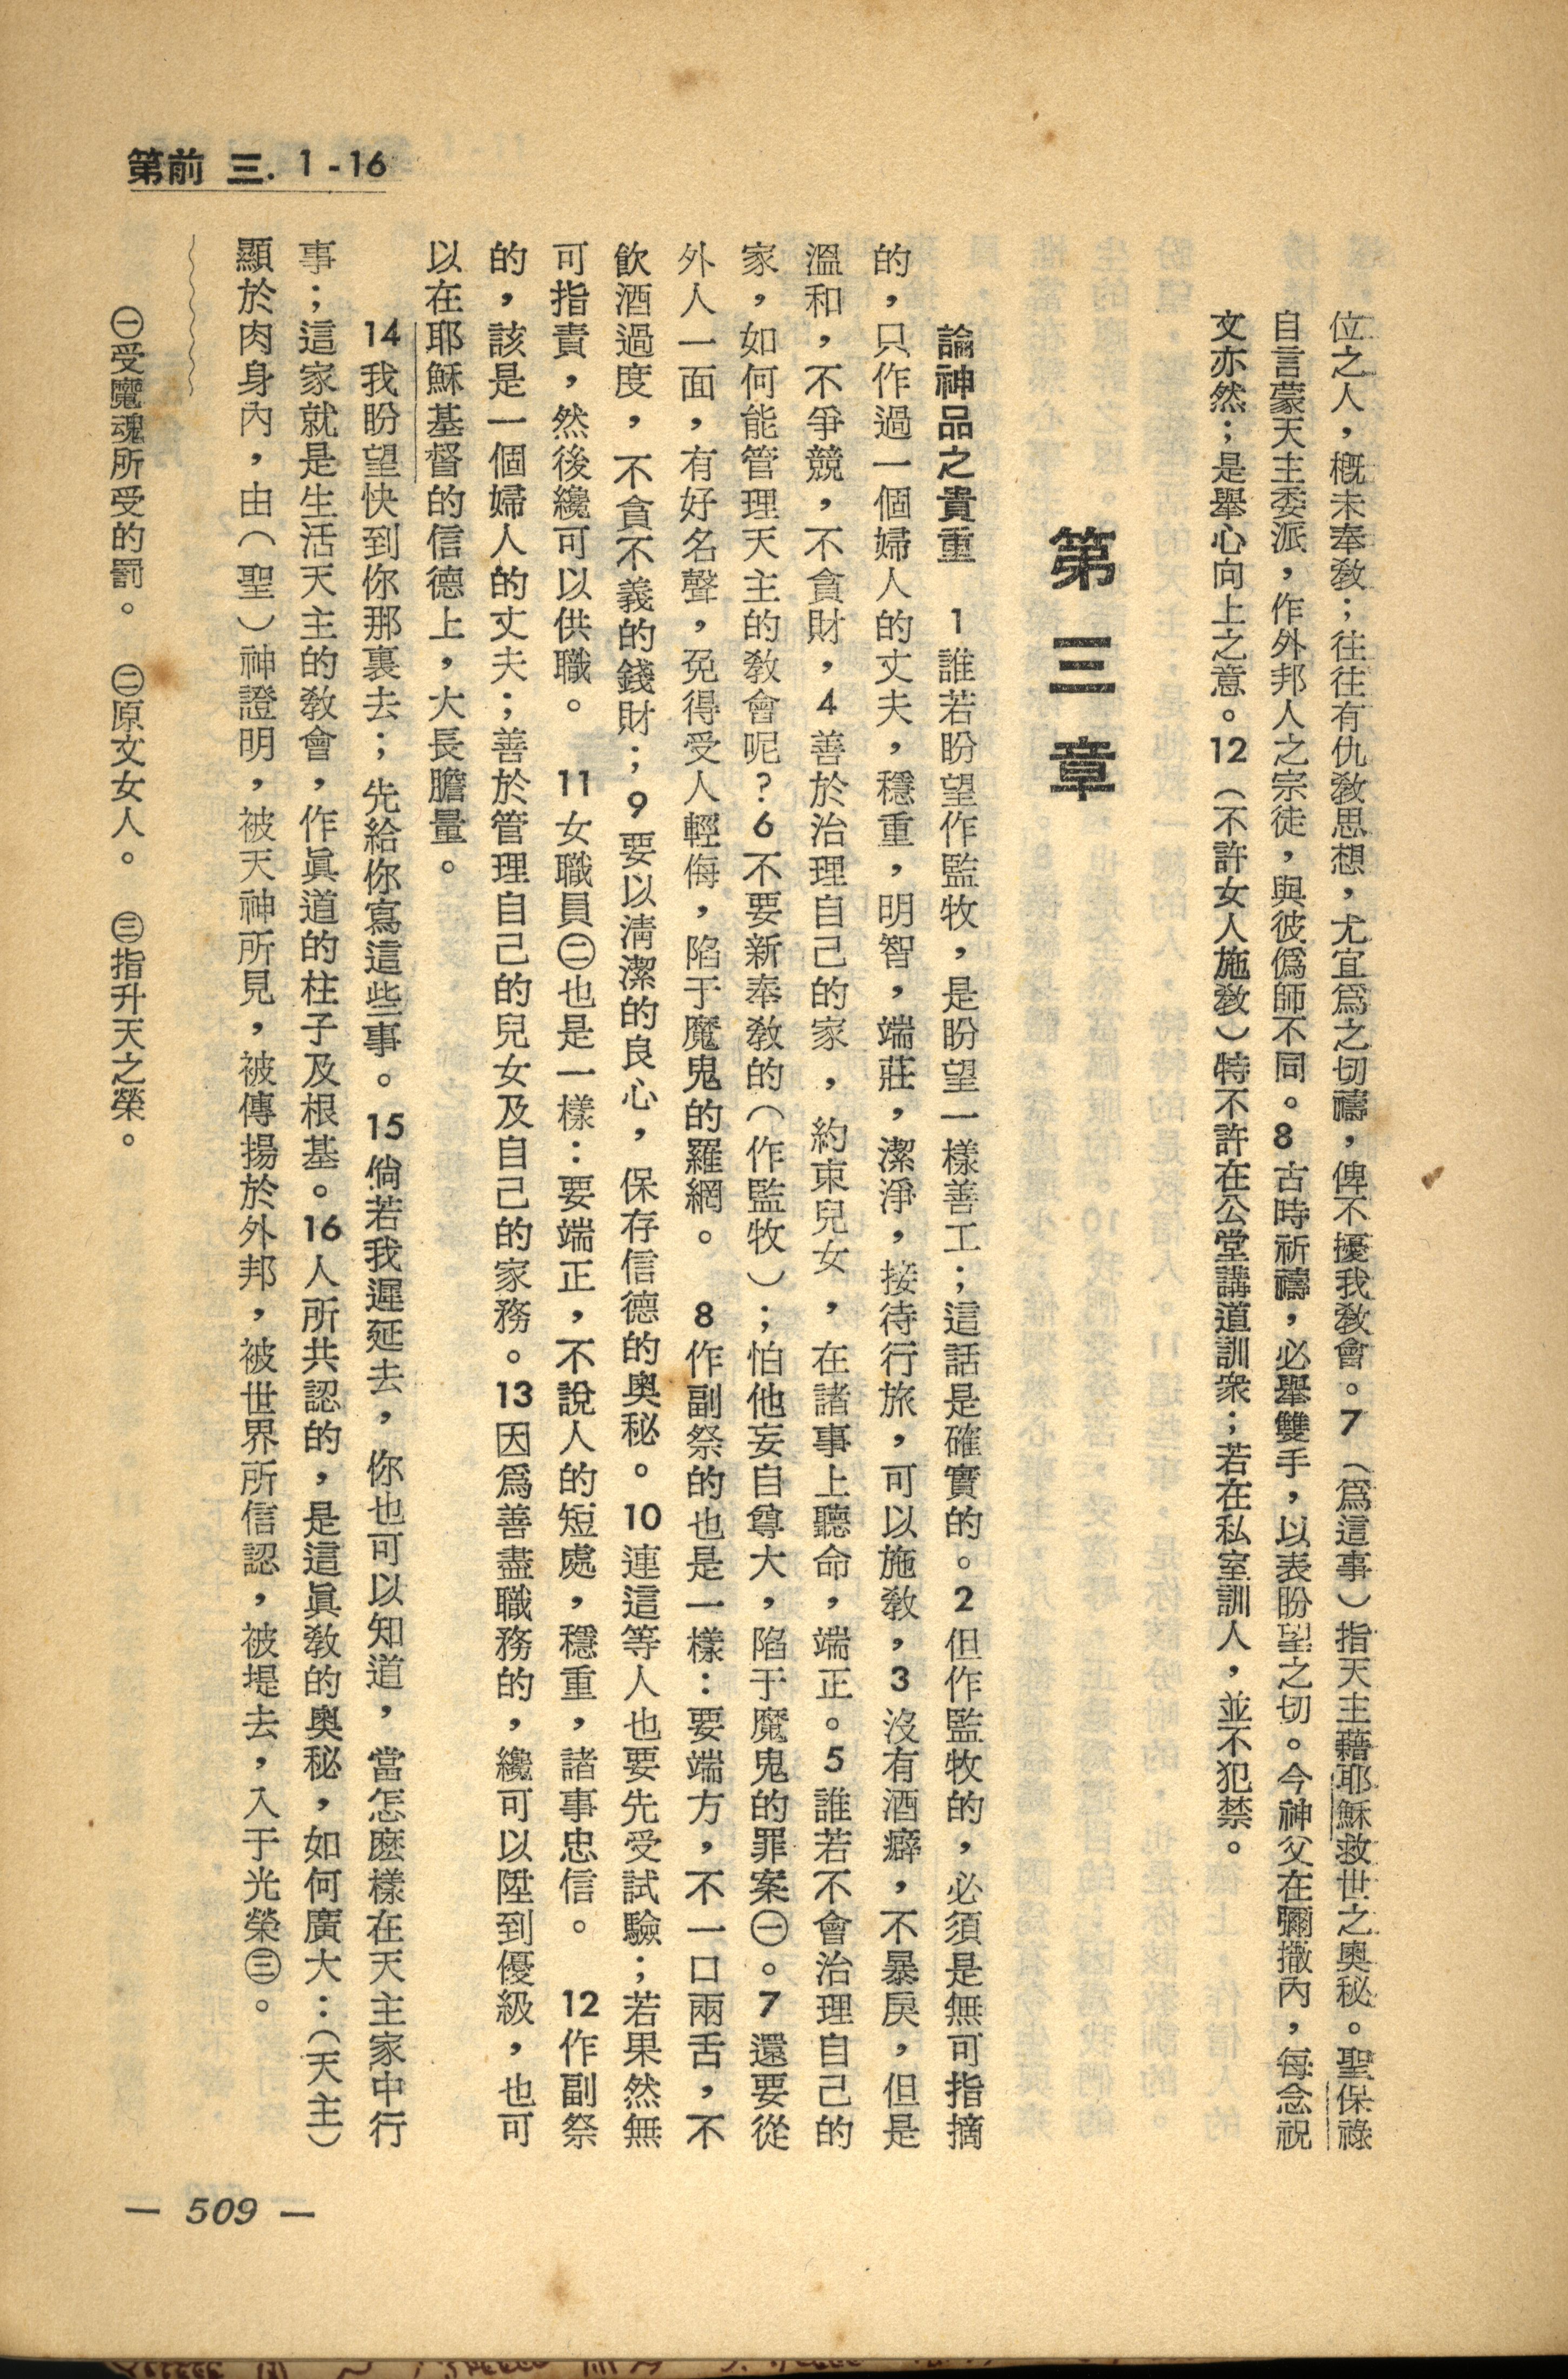 第前 三. 1-16
位之人，概未奉教；往往有仇教思想，尤宜爲之切禱，俾不擾我教會。7（爲這事）指天主藉耶穌救世之奧秘。聖保祿
自言蒙天主委派，作外邦人之宗徒，與彼僞師不同。8古時祈禱，必舉雙手，以表盼望之切。今神父在彌撒內，每念祝
文亦然；是舉心向上之意。12（不許女人施教）特不許在公堂講道訓衆；若在私室訓人，並不犯禁。
第三章
論神品之貴重　1誰若盼望作監牧，是盼望一樣善工；這話是確實的。2但作監牧的，必須是無可指摘
的，只作過一個婦人的丈夫，穩重，明智，端莊，潔淨，接待行旅，可以施教，3沒有酒癖，不暴戾，但是
溫和，不爭競，不貪財，4善於治理自己的家，約束兒女，在諸事上聽命，端正。5誰若不會治理自己的
家，如何能管理天主的教會呢？6不要新奉教的（作監牧）；怕他妄自尊大，陷于魔鬼的罪案㊀。7還要從
外人一面，有好名聲，免得受人輕侮，陷于魔鬼的羅網。　8作副祭的也是一樣：要端方，不一口兩舌，不
飲酒過度，不貪不義的錢財；9要以淸潔的良心，保存信德的奧秘。10連這等人也要先受試驗；若果然無
可指責，然後纔可以供職。　11女職員㊁也是一樣：要端正，不說人的短處，穩重，諸事忠信。　12作副祭
的，該是一個婦人的丈夫；善於管理自己的兒女及自己的家務。13因爲善盡職務的，纔可以陞到優級，也可
以在耶穌基督的信德上，大長膽量。
14我盼望快到你那裏去；先給你寫這些事。15倘若我遲延去，你也可以知道，當怎麽樣在天主家中行
事；這家就是生活天主的教會，作眞道的柱子及根基。16人所共認的，是這眞教的奧秘，如何廣大：（天主）
顯於肉身內，由（聖）神證明，被天神所見，被傳揚於外邦，被世界所信認，被堤去，入于光榮㊂。
㊀受魔魂所受的罰。　㊁原文女人。　㊂指升天之榮。
— 509 —